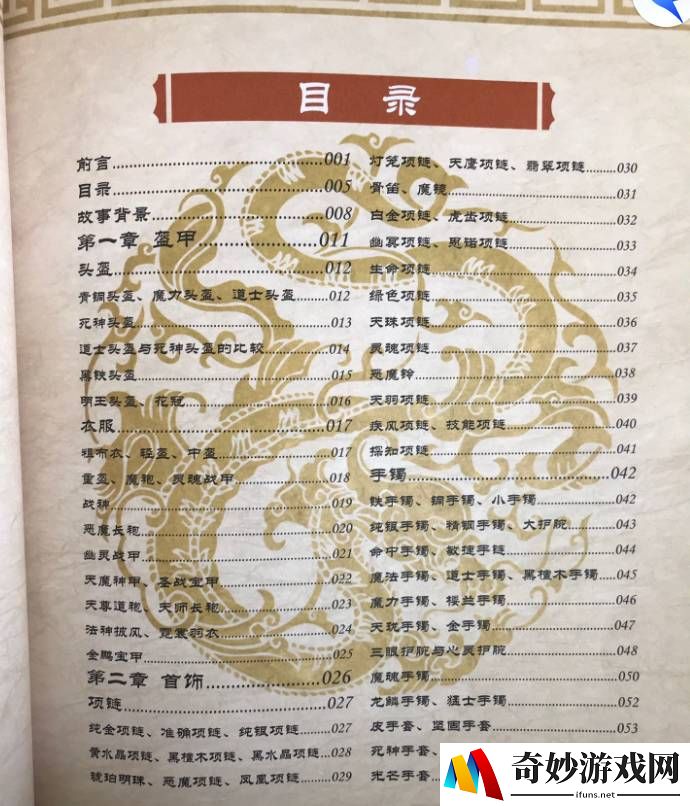 目 录
前言..........001
目录..........005
故事背景..........008
第一章 盔甲..........011
头盔..........012
青铜头盔、魔力头盔、道士头盔..........012
死神头盔..........013
道士头盔与死神头盔的比较..........014
黑铁头盔..........015
明王头盔、花冠..........016
衣服..........017
粗布衣、轻盔、中盔..........017
重盔、魔袍、灵魂战甲..........018
战神..........019
恶魔长袍..........020
幽灵战甲..........021
天魔神甲、圣战宝甲..........022
天尊道袍、天师长袍..........023
法神披风、霓裳羽衣..........024
金鹏宝甲..........025
第二章 首饰..........026
项链..........027
纯金项链、准确项链、纯银项链..........027
黄水晶项链、黑檀木项链、黑水晶项链..........028
琥珀明珠、恶魔项链、凤凰项链..........029
灯笼项链、天鹰项链、翡翠项链..........030
骨笛、魔镜..........031
白金项链、虎齿项链..........032
幽冥项链、恩诺项链..........033
生命项链..........034
绿色项链..........035
天珠项链..........036
灵魂项链..........037
恶魔铃..........038
天羽项链..........039
疾风项链、技能项链..........040
探知项链..........041
手镯..........042
铁手镯、铜手镯、小手镯..........042
纯银手镯、精钢手镯、大护腕..........043
命中手镯、敏捷手链..........044
魔法手镯、道士手镯、黑檀木手镯..........045
魔力手镯、楼兰手镯..........046
天珑手镯、金手镯..........047
三眼护腕与心灵护腕..........048
魔魂手镯..........050
龙鳞手镯、猛士手镯..........052
皮手套、坚固手套..........053
死神手套、
光芒手套..........
奇妙游戏网
ifuns.net